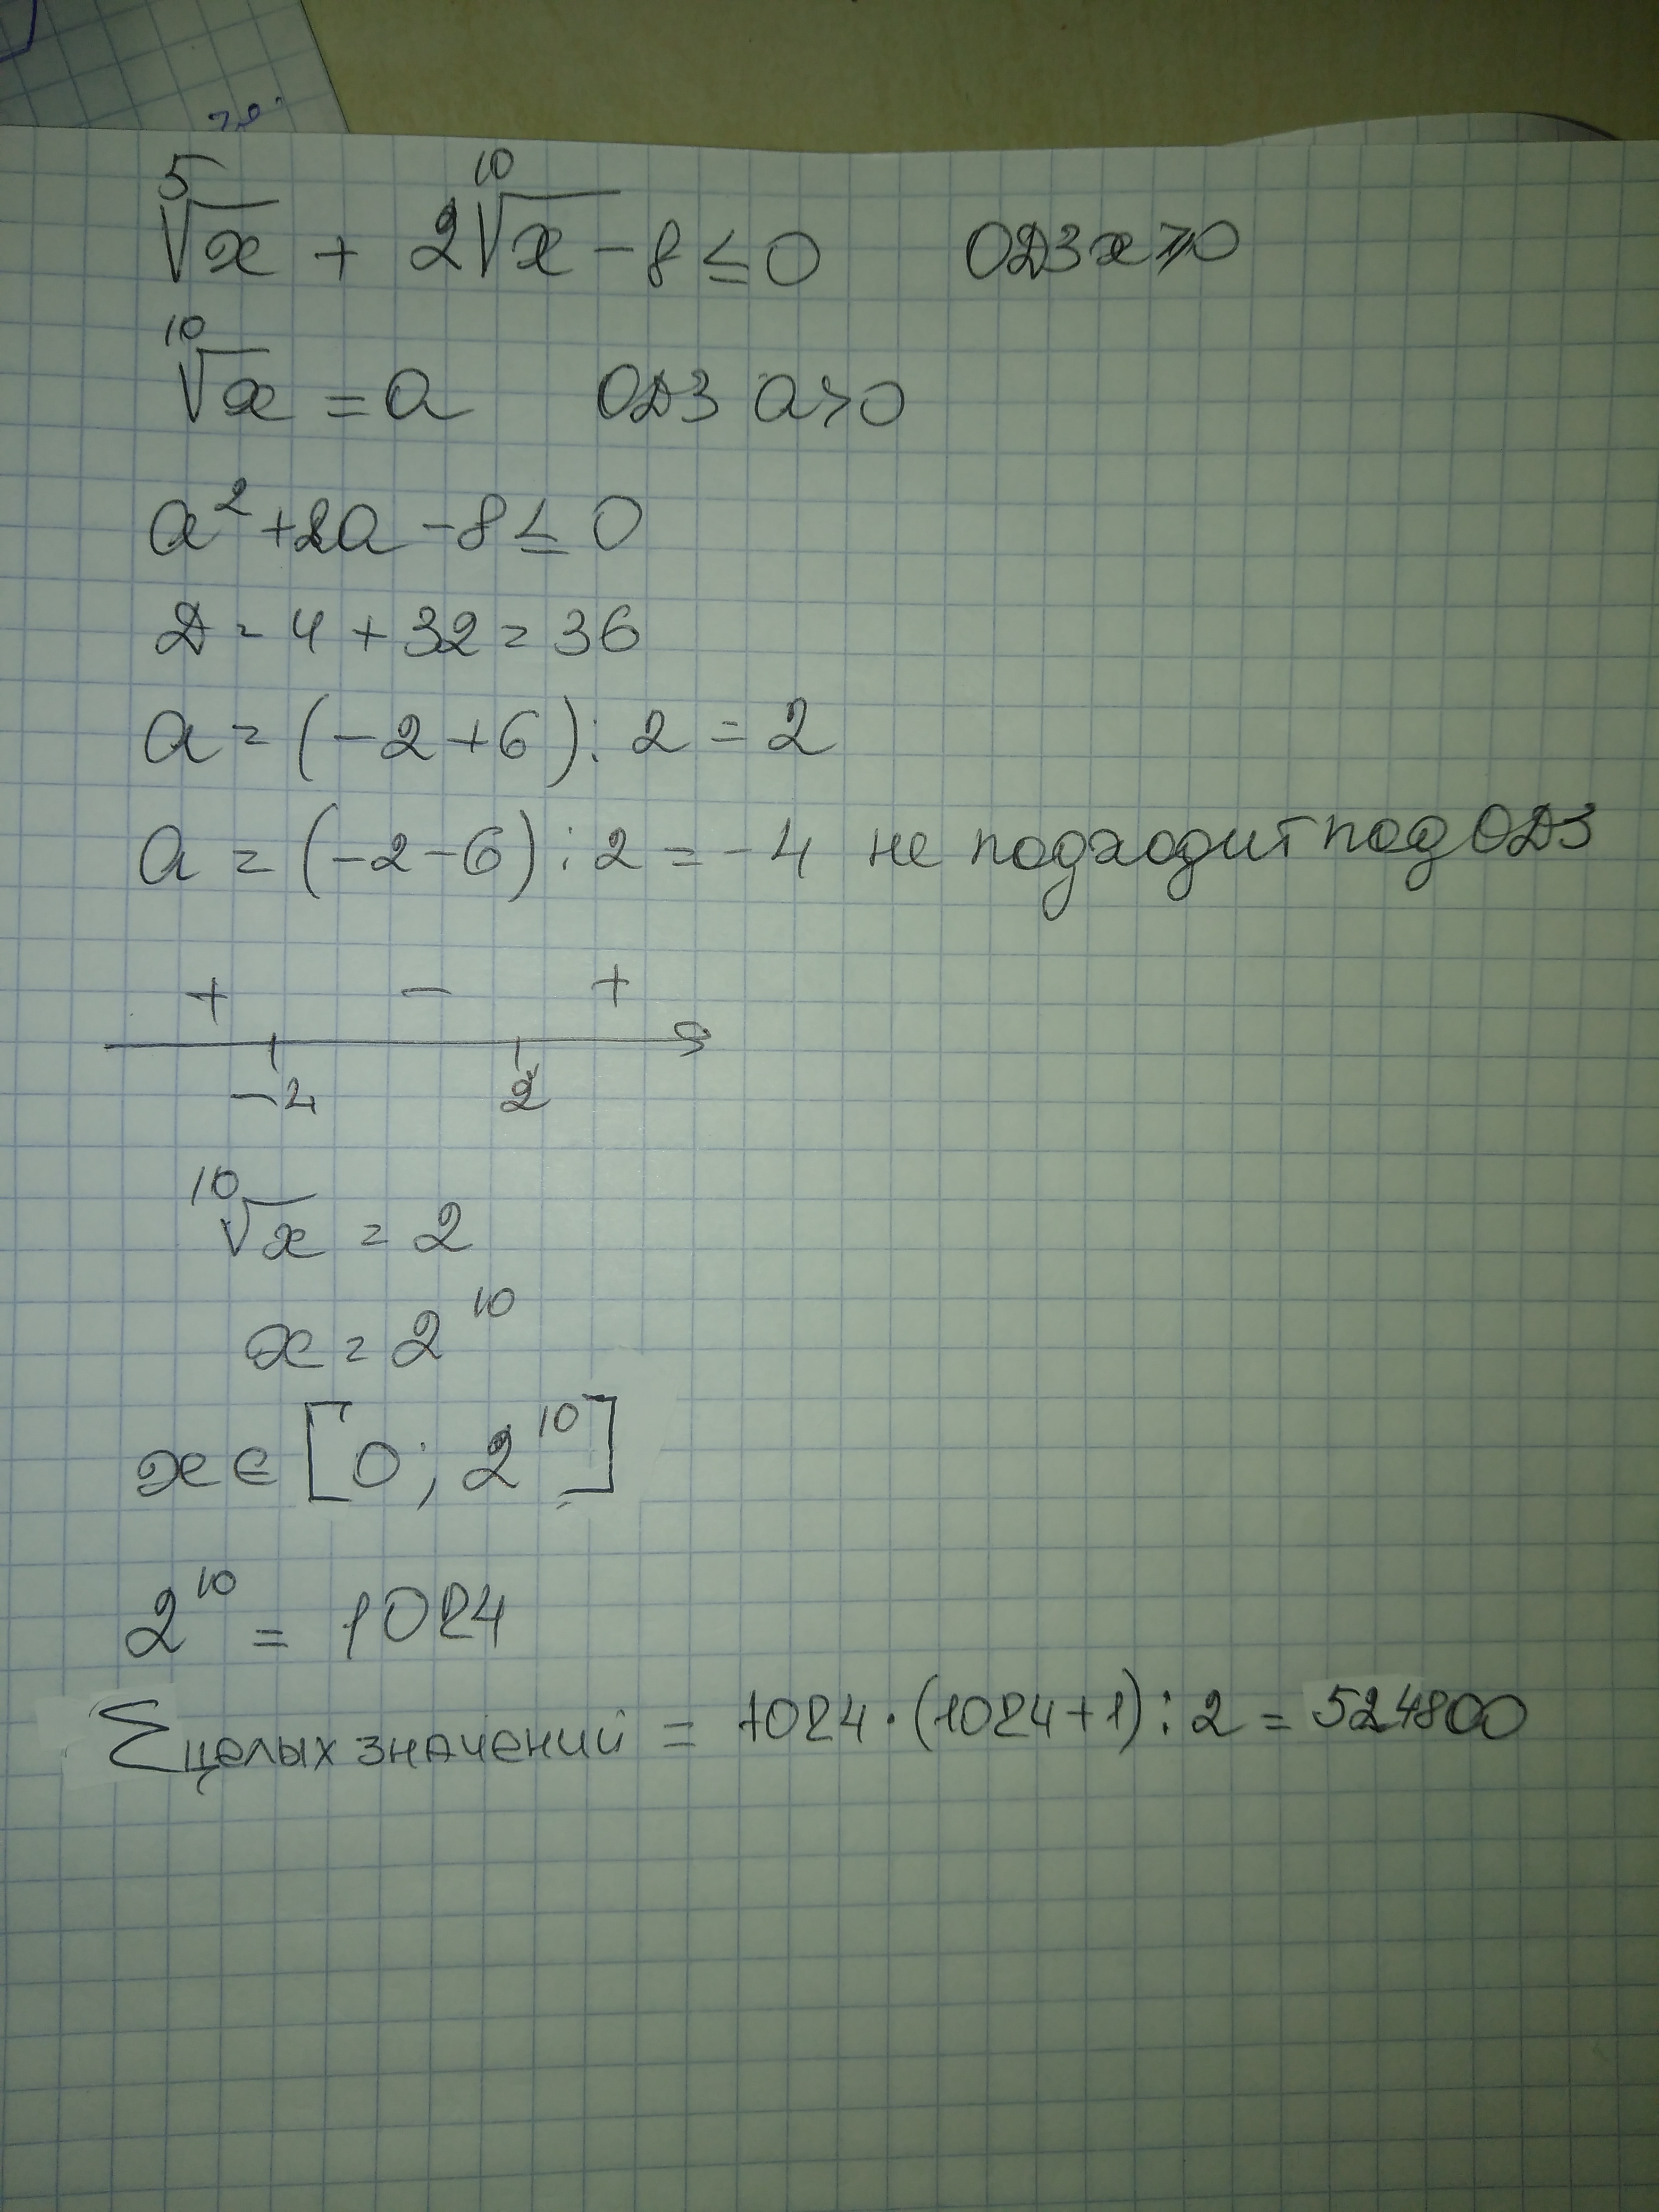 ⁵√x + 2 ¹⁰√x - 8 ≤ 0 ОДЗ x ≥ 0
¹⁰√x = a ОДЗ a > 0
a² + 2a - 8 ≤ 0
D = 4 + 32 = 36
a = (-2+6) : 2 = 2
a = (-2-6) : 2 = -4 не подходит под ОДЗ
+ - +
-4 2
¹⁰√x = 2
x = 2¹⁰
x ∈ [0; 2¹⁰]
2¹⁰ = 1024
Σ целых значений = 1024 · (1024+1) : 2 = 524800